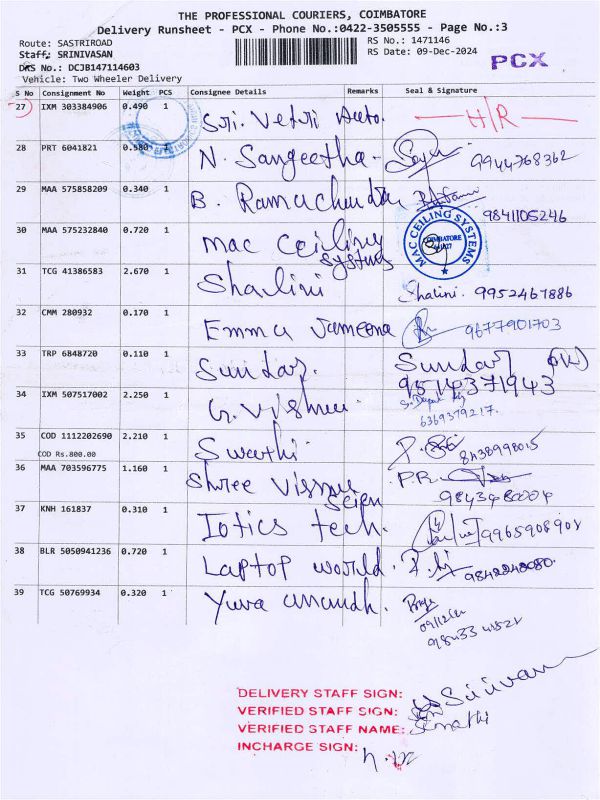 THE PROFESSIONAL COURIERS, COIMBATORE
Delivery Runsheet - PCX - Phone No.:0422-3505555 - Page No.:3
Route: SASTRIROAD RS No.: 1471146
Staff: SRINIVASAN RS Date: 09-Dec-2024
DRS No.: DCJB147114603 PCX
Vehicle: Two Wheeler Delivery
S No Consignment No Weight PCS Consignee Details Remarks Seal & Signature
27 IXM 303384906 0.490 1 Sri. Vetri Auto. H/R
28 PRT 6041821 0.580 1 N. Sangeetha 9944768362
29 MAA 575858209 0.340 1 B. Ramachandra 9841105246
30 MAA 575232840 0.720 1 Mac Ceiling Systems MAC CEILING SYSTEMS COIMBATORE
31 TCG 41386583 2.670 1 Shalini Shalini. 9952467886
32 CMM 280932 0.170 1 Emma Jameena 9677901703
33 TRP 6848720 0.110 1 Sundar. Sundar 9514371943
34 IXM 507517002 2.250 1 G. Vishnu 6369379217.
35 COD 1112202690 2.210 1 Swathi 8438998015
COD Rs.800.00
36 MAA 703596775 1.160 1 Shree Vishnu P.R. 9843480004
37 KNH 161837 0.310 1 Iotics tech. 9965908908
38 BLR 5050941236 0.720 1 Laptop world. 9842248080.
39 TCG 50769934 0.320 1 Yuva anandh.
09/12/24
DELIVERY STAFF SIGN:
VERIFIED STAFF SIGN:
VERIFIED STAFF NAME:
INCHARGE SIGN: